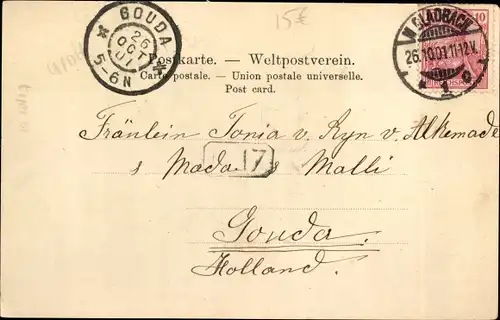 15€
GOUDA
26
OCT
01
5-6N
M. GLADBACH
26.10.01.11-12V.
1 c
10
Postkarte. — Weltpostverein.
Carte postale. — Union postale universelle.
Post card.
Fräulein Tonia v. Ryn v. Alkemade
17
s Mada s Malli
Gouda.
Holland.